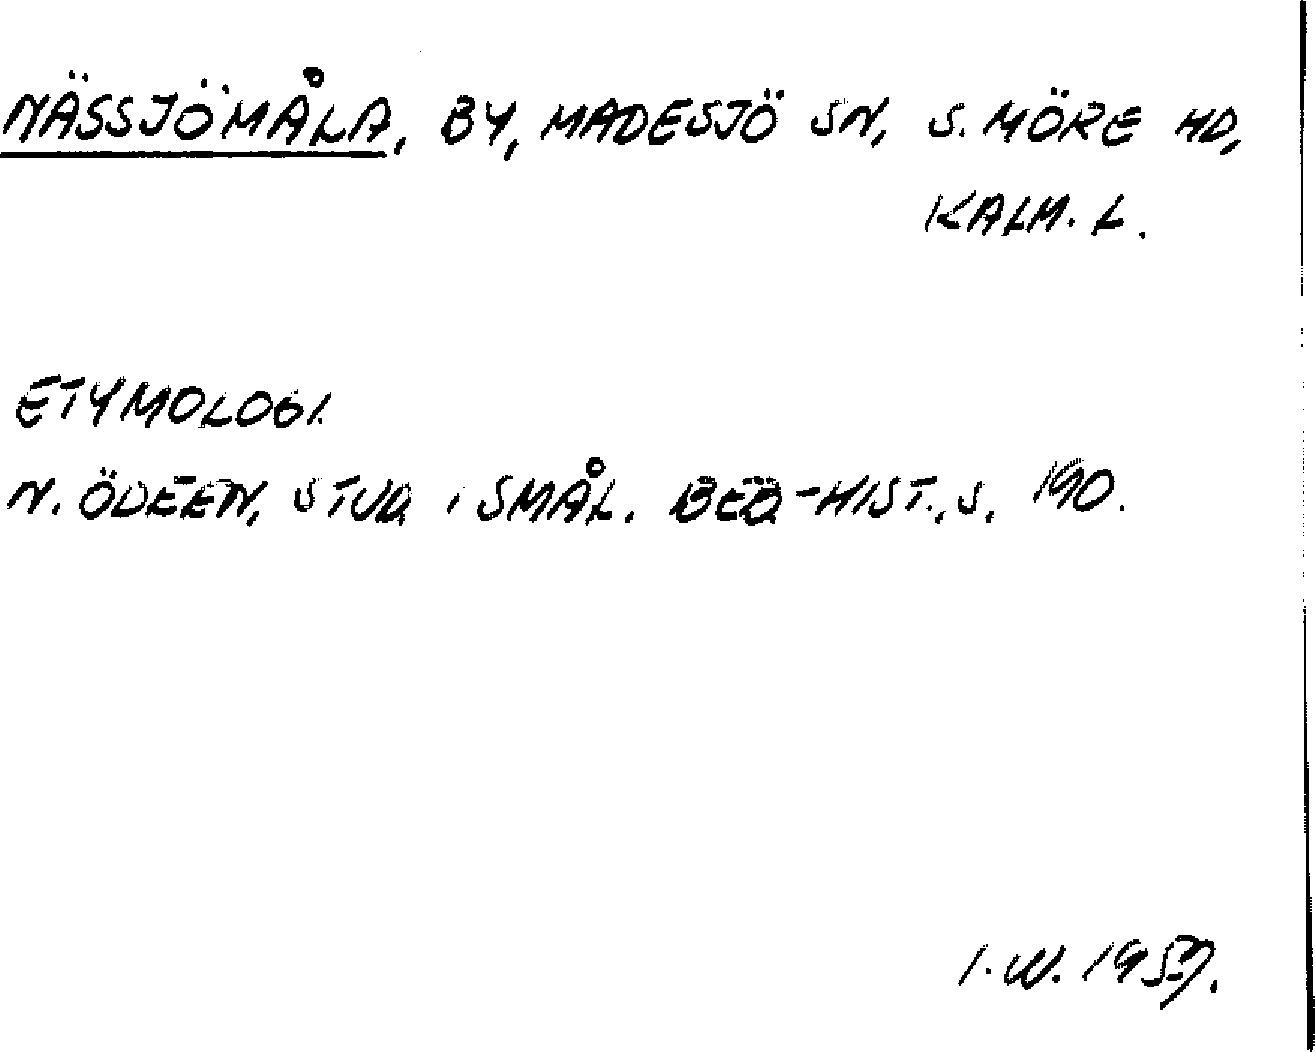 NÄSSJÖMÅLA, BY, MADESJÖ SN, S. MÖRE HD,
KALM. L.
ETYMOLOGI.
N. ÖDEEN, STUD. I SMÅL. BEB-HIST., S. 190.
I. W. 1959.